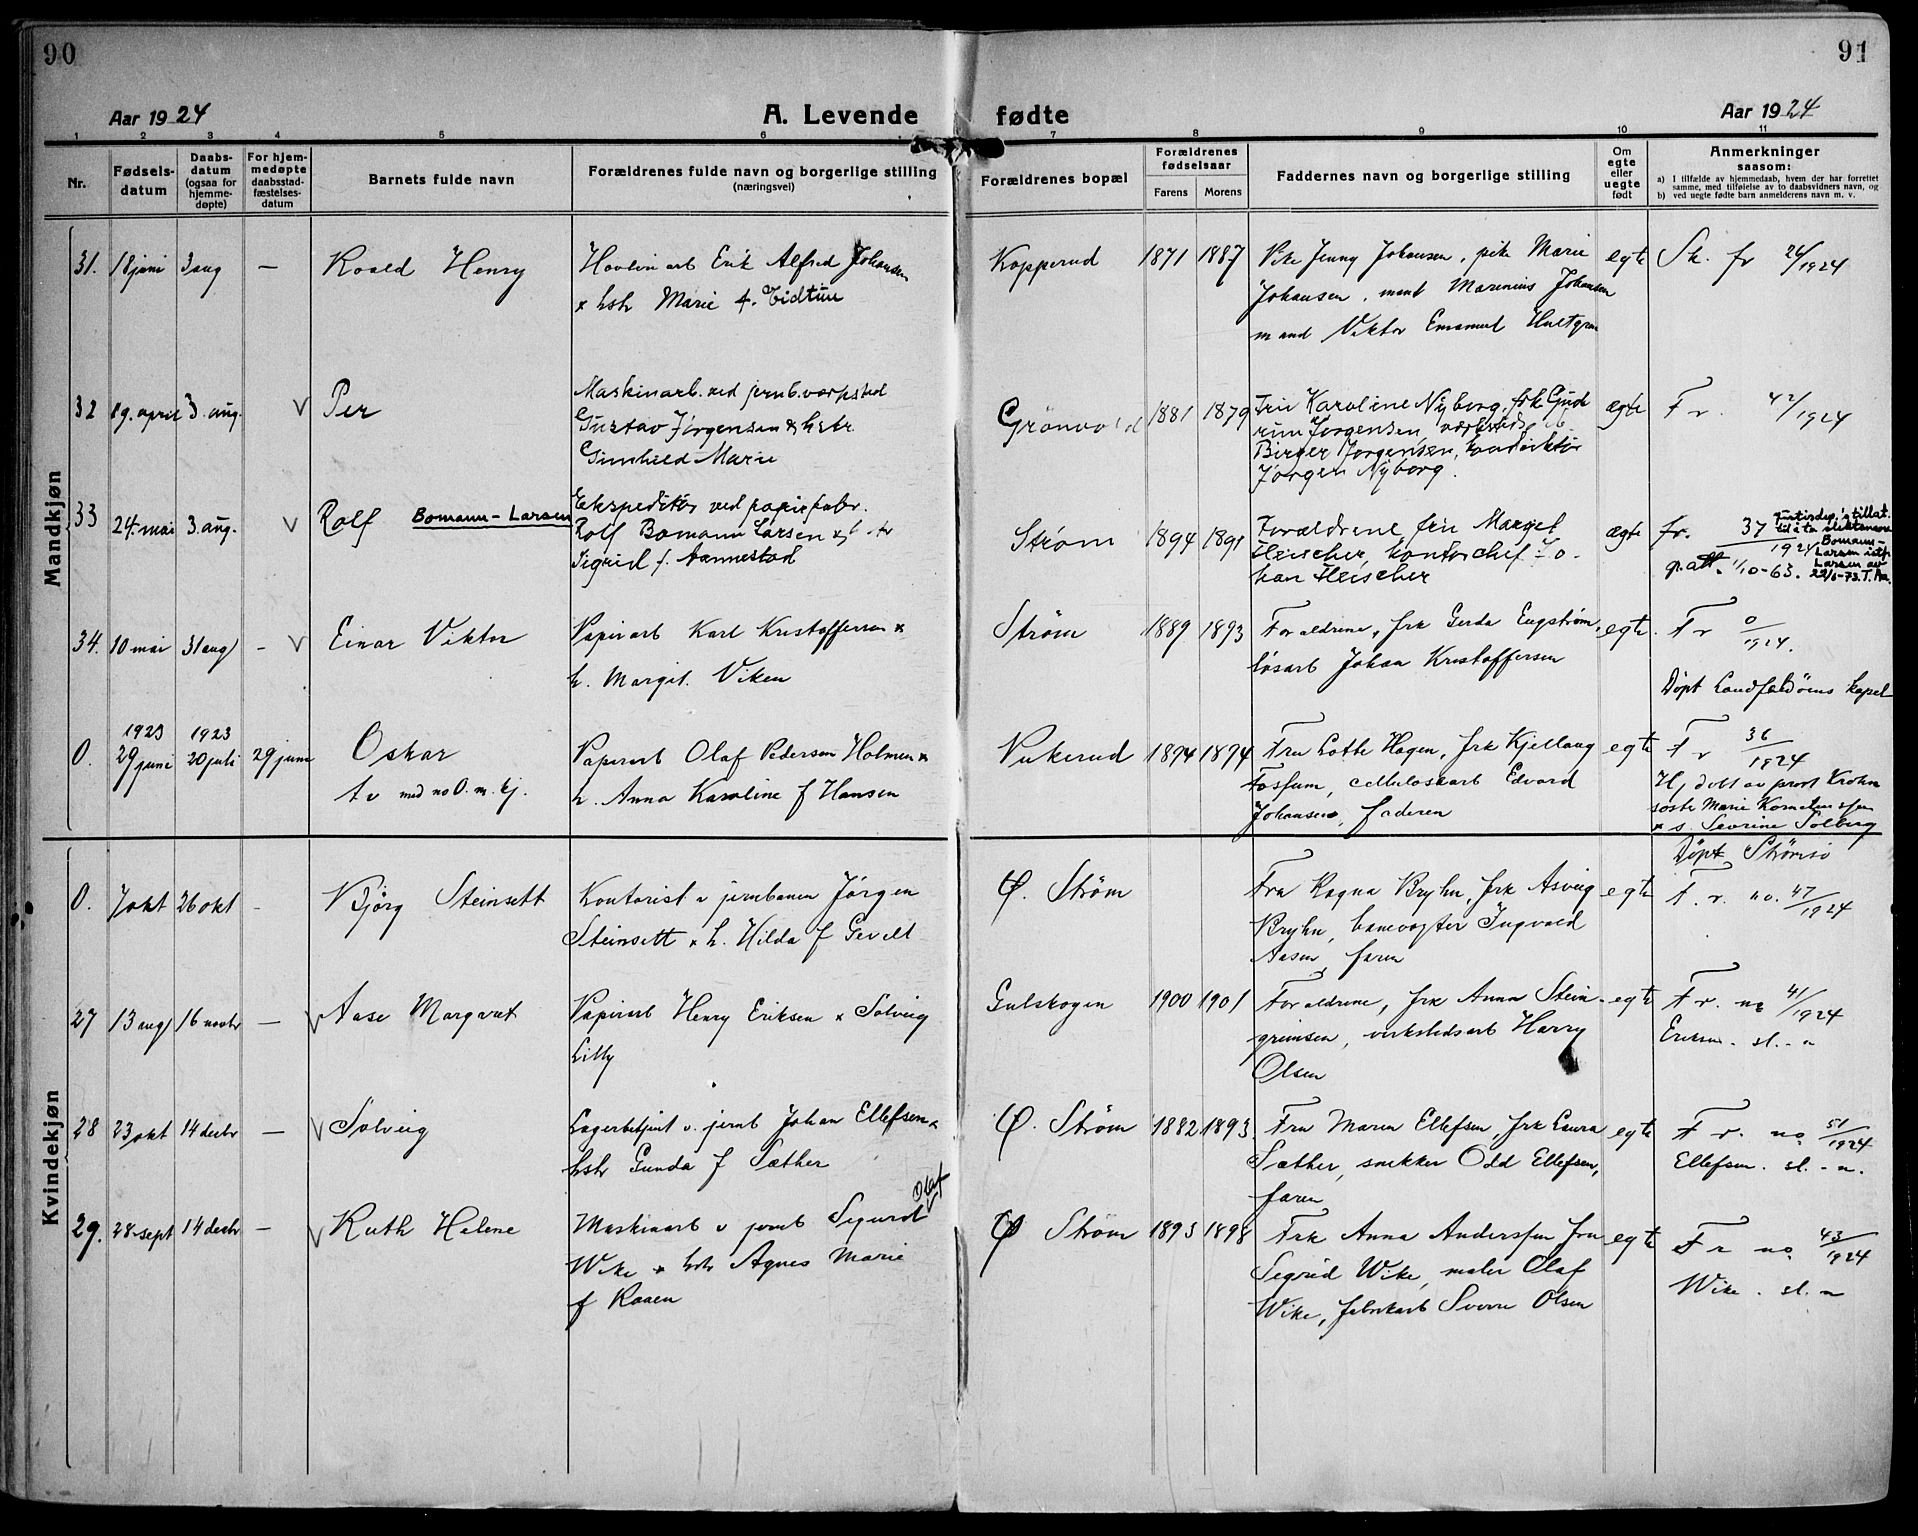 90
91
Aar 1924
A. Levende
fødte
Aar 1924
1 2 3 4 5 6 7 8 9 10 11
Nr.
Fødsels-
datum
Daabs-
datum
(ogsaa for
hjemme-
døpte)
For hjem-
medøpte
daabsstad-
fæstelses-
datum
Barnets fulde navn
Forældrenes fulde navn og borgerlige stilling
(næringsvei)
Forældrenes bopæl
Forældrenes
fødselsaar
Farens Morens
Faddernes navn og borgerlige stilling
Om
egte
eller
uegte
født
Anmerkninger
saasom:
a) I tilfælde av hjemmedaab, hvem der har forrettet
samme, med tilføielse av to daabsvidners navn, og
b) ved uegte fødte barn anmelderens navn m. v.
Mandkjøn
31. 18 juni 3 aug — Roald Henry
Hovleriarb Erik Alfred Johansen
x hstr Marie f. Tidture
Kopperud 1871 1887
Pike Jenny Johansen, pike Marie
Johansen, mand Marinius Johansen
mand Viktor Emanuel Hultgren
egte
Sk. fr 24/1924
32 19. april 3. aug. V Per
Maskinarb. ved jernb.værksted
Gustav Jørgensen & hstr.
Gunhild Marie
Grønvold 1881 1879
Fru Karoline Nyborg, frk Gud
run Jørgensen,
Birger Jørgensen, konduktør
Jørgen Nyborg.
ægte
Fr. 42/1924
33 24. mai 3. aug. V Rolf Bomann-Larsen
Ekspeditør ved papirfabr.
Rolf Bomann Larsen &
Sigrid f. Aannestad
Strøm 1894 1891
Forældrene, fru Margit
Fleischer, kontorchef Jo-
han Fleischer
ægte
fr. 37/1924
p. att. 1/10-63.
Justisdep.'s tillat.
til å ta slektsnavn
Bomann-
Larsen istf.
Larsen av
22/5-73. T. Aa.
34. 10 mai 31 aug - V Einar Viktor
Papirarb Karl Kristoffersen x
h. Margit. Viken
Strøm 1889 1893
Forældrene, frk Gerda Engstrøm,
løsarb Johan Kristoffersen
egte.
Fr 0/1924.
Døpt Landfaldøens kapel
0. 1923 29 juni 1923 20 juli 29 juni Oskar
tv med no 0. m. kj.
Papirarb Olaf Pedersen Holmen x
h. Anna Karoline f Hansen
Pukerud 1894 1894
Fru Lotte Hagen, frk Kjellaug
Fosfum, cellulosearb Edvard
Johansen, faderen
egte
Fr 36/1924
Hj døbt av prost Krohn
søstr Marie
x s. Severine Solberg
Kvindekjøn
0. 7 okt 26 okt - Bjørg Steinsett
Kontorist v jernbanen Jørgen
Steinsett x h. Hilda f Gevelt
Ø. Strøm
Fru Ragna Bryhn, frk Asvig
Bryhn, banevogter Ingvald
Aasen, faren
egte
Døpt Strømsø
F. r. no. 47/1924
27 13 aug 16 novbr — V Aase Margret
Papirarb Henry Eriksen x Solveig
Lilly
Gulskogen 1900 1901
Forældrene, frk Anna Stein-
grimsen, verkstedsarb Harry
Olsen
egte
Fr. no 41/1924
Eriksen. sl. - n
28 23 okt 14 desbr — V Solveig
Lagerbetjent v. jernb Johan Ellefsen x
hstr Gunda f Sæther
Ø. Strøm 1882 1893
Fru Maren Ellefsen, frk Laura
Sæther, snekker Odd Ellefsen,
faren
egte
Fr. no. 51/1924
Ellefsen. sl. - n.
29. 28 sept 14 desbr — V Ruth Helene
Maskinarb v jernb Sigurd Olaf
Wike x hstr Agnes Marie
f Raaen
Ø Strøm 1895 1898
Frk Anna Andersen fru
Sigrid Wike, maler Olaf
Wike, fabrikarb Sverre Olsen
egte
Fr no. 43/1924
Wike. sl. n